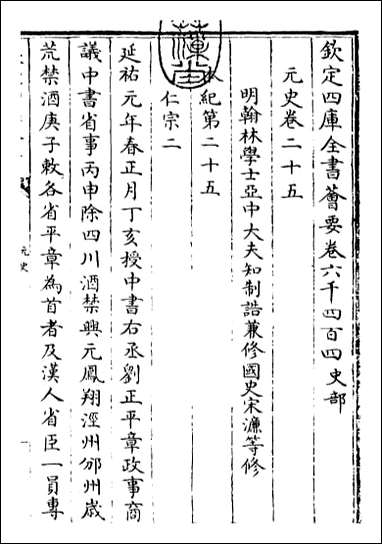 欽定四庫全書薈要卷六千四百四史部
元史卷二十五
明翰林學士亞中大夫知制誥兼修國史宋濂等修
紀第二十五
仁宗二
延祐元年春正月丁亥授中書右丞劉正平章政事商
議中書省事丙申除四川酒禁興元鳳翔涇州邠州歲
荒禁酒庚子敕各省平章為首者及漢人省臣一員專
元史
一